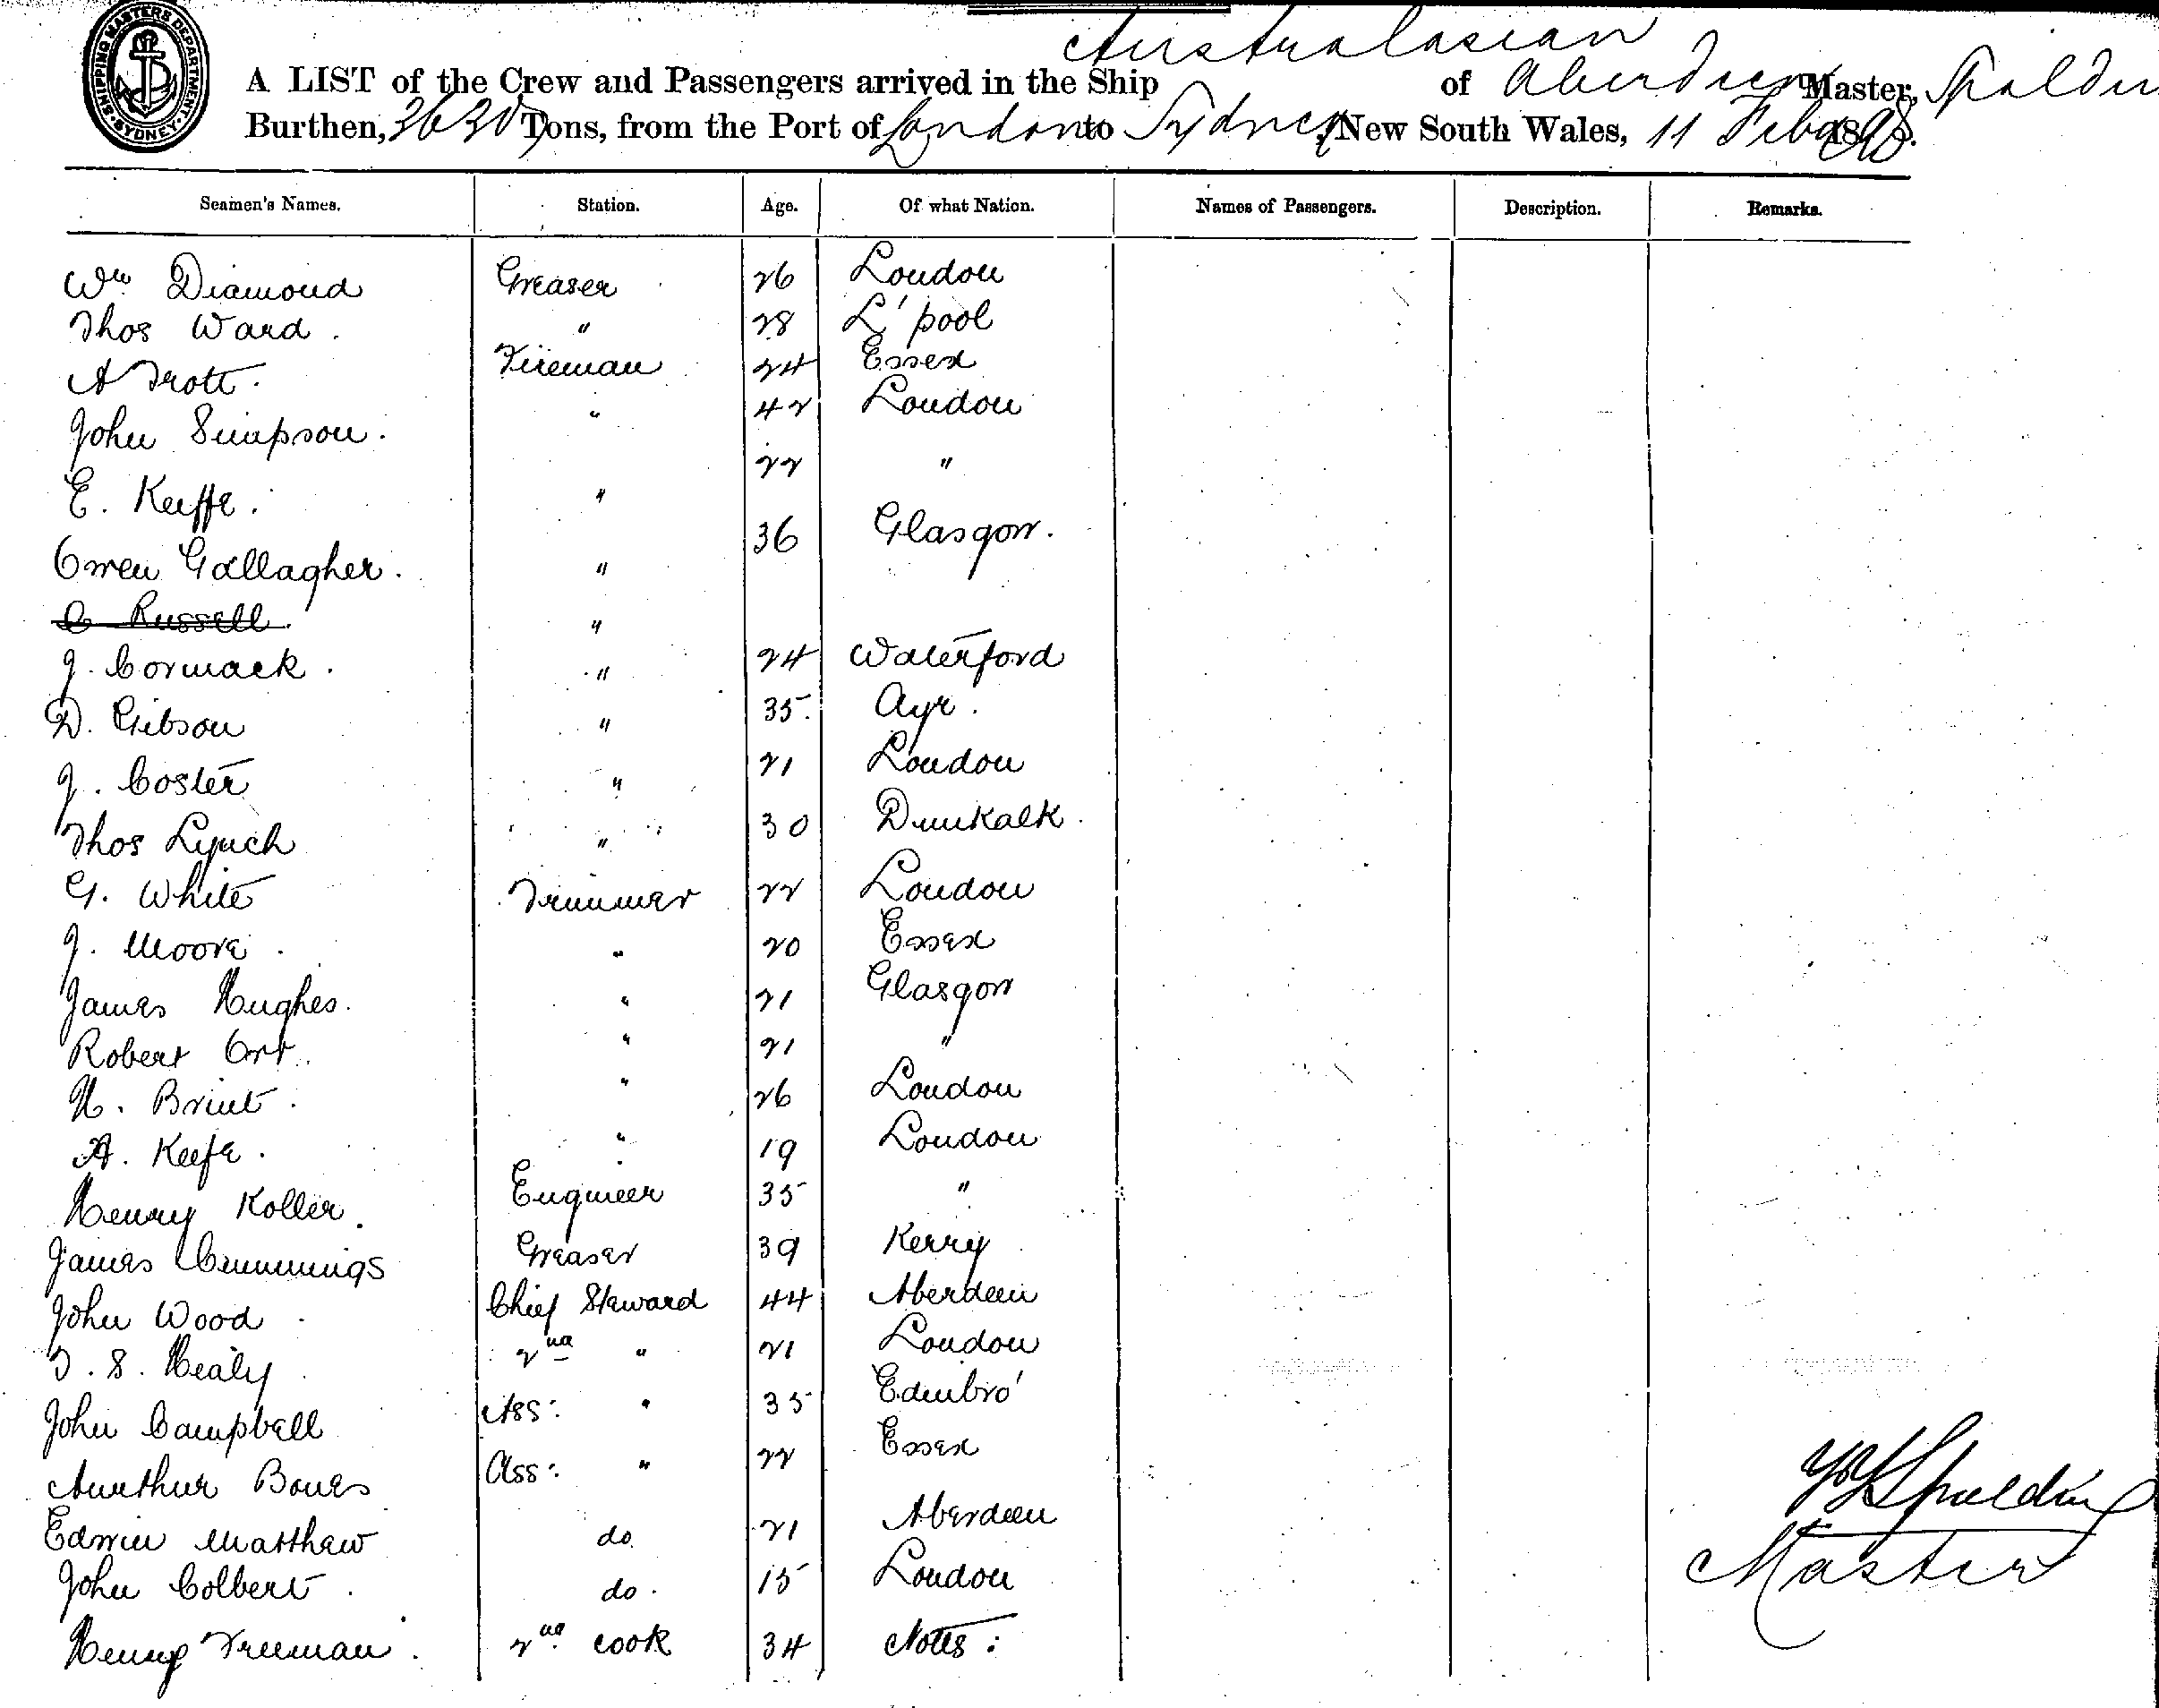 SHIPPING MASTERS DEPARTMENT. SYDNEY.
Australasian
A LIST of the Crew and Passengers arrived in the Ship of Aberdeen Master, Spalding
Burthen, 3630 Tons, from the Port of London to Sydney New South Wales, 11 Feby 1898.
Seamen's Names. Station. Age. Of what Nation. Names of Passengers. Description. Remarks.
Wm Diamond Greaser 26 London
Thos Ward. " 28 L'pool
A Trott. Fireman 24 Essex
John Simpson. " 42 London
E. Keeffe. " 22 "
Owen Gallagher. " 36 Glasgow.
C Russell. "
J. Cormack. " 24 Waterford
D. Gibson " 35. Ayr.
J. Coster " 21 London
Thos Lynch " 30 Dunkalk.
G. White Trimmer 22 London
J. Moore. " 20 Essex
James Hughes. " 21 Glasgow
Robert Orr. " 21 "
H. Brint. " 26 London
A. Keefe. " 19 London
Henry Koller. Engineer 35 "
James Cummings Greaser 39 Kerry
John Wood Chief Steward 44 Aberdeen
T. S. Healy 2nd " 21 London
John Campbell Ass: " 35 Edinbro'
Aurthur Bones Ass: " 22 Essex
Edwin Matthew do 21 Aberdeen
John Colbert. do. 15 London
Henry Freeman. 2nd cook 34 Notts:
Spalding
Master